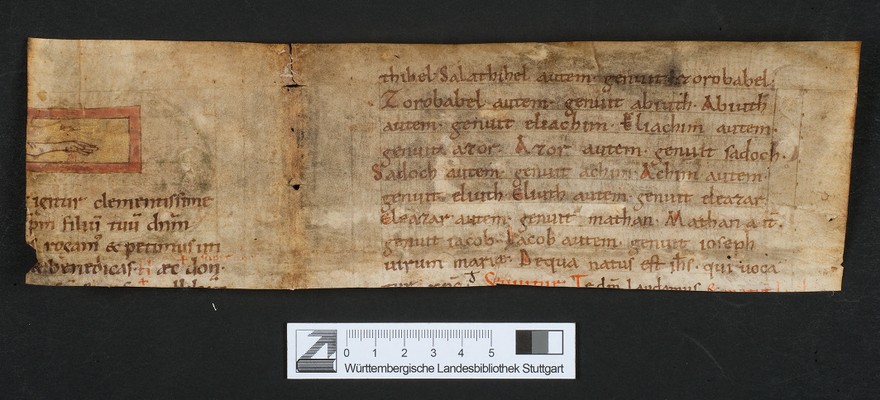 igitur clementissime
p̄m filiū tuū dn̄m
rogam᷒ & petimus uti
& benedicas. h̄ ⁜ec don̄.
thihel. Salathihel autem. genuit zorobabel.
Zorobabel autem. genuit abiuth. Abiuth
autem. genuit eliachim. Eliachim autem.
genuit azor. Azor autem. genuit sadoch.
Sadoch autem. genuit achim. Achim autem.
genuit eliuth. Eliuth autem. genuit eleazar.
Eleazar autem. genuit mathan. Mathan aūt.
genuit iacob. Iacob autem. genuit ioseph
uirum mariæ. De qua natus est ih̄s. qui uoca
Sequitur Te dm̄ laudamus
0 1 2 3 4 5
Württembergische Landesbibliothek Stuttgart